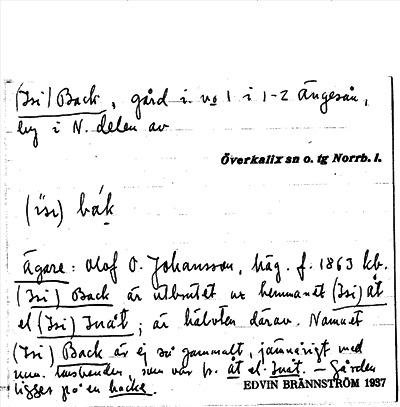 (Isi) Back, gård i. nº 1 i 1-2 Ängesån,
by i N. delen av
Överkalix sn o. tg Norrb. l.
(ìsi) bák
Ägare: Olof O. Johansson, häg. f. 1863 kb.
(Isi) Back är utbrutet ur hemmanet (Isi) åt
el (Isi) Inåt; är hälvten därav. Namnet
(Isi) Back är ej så gammalt, jämnårigt med
nuv. husbonden, som var fr. åt el. Inåt. — Gården
ligger på en backe.
EDVIN BRÄNNSTRÖM 1937